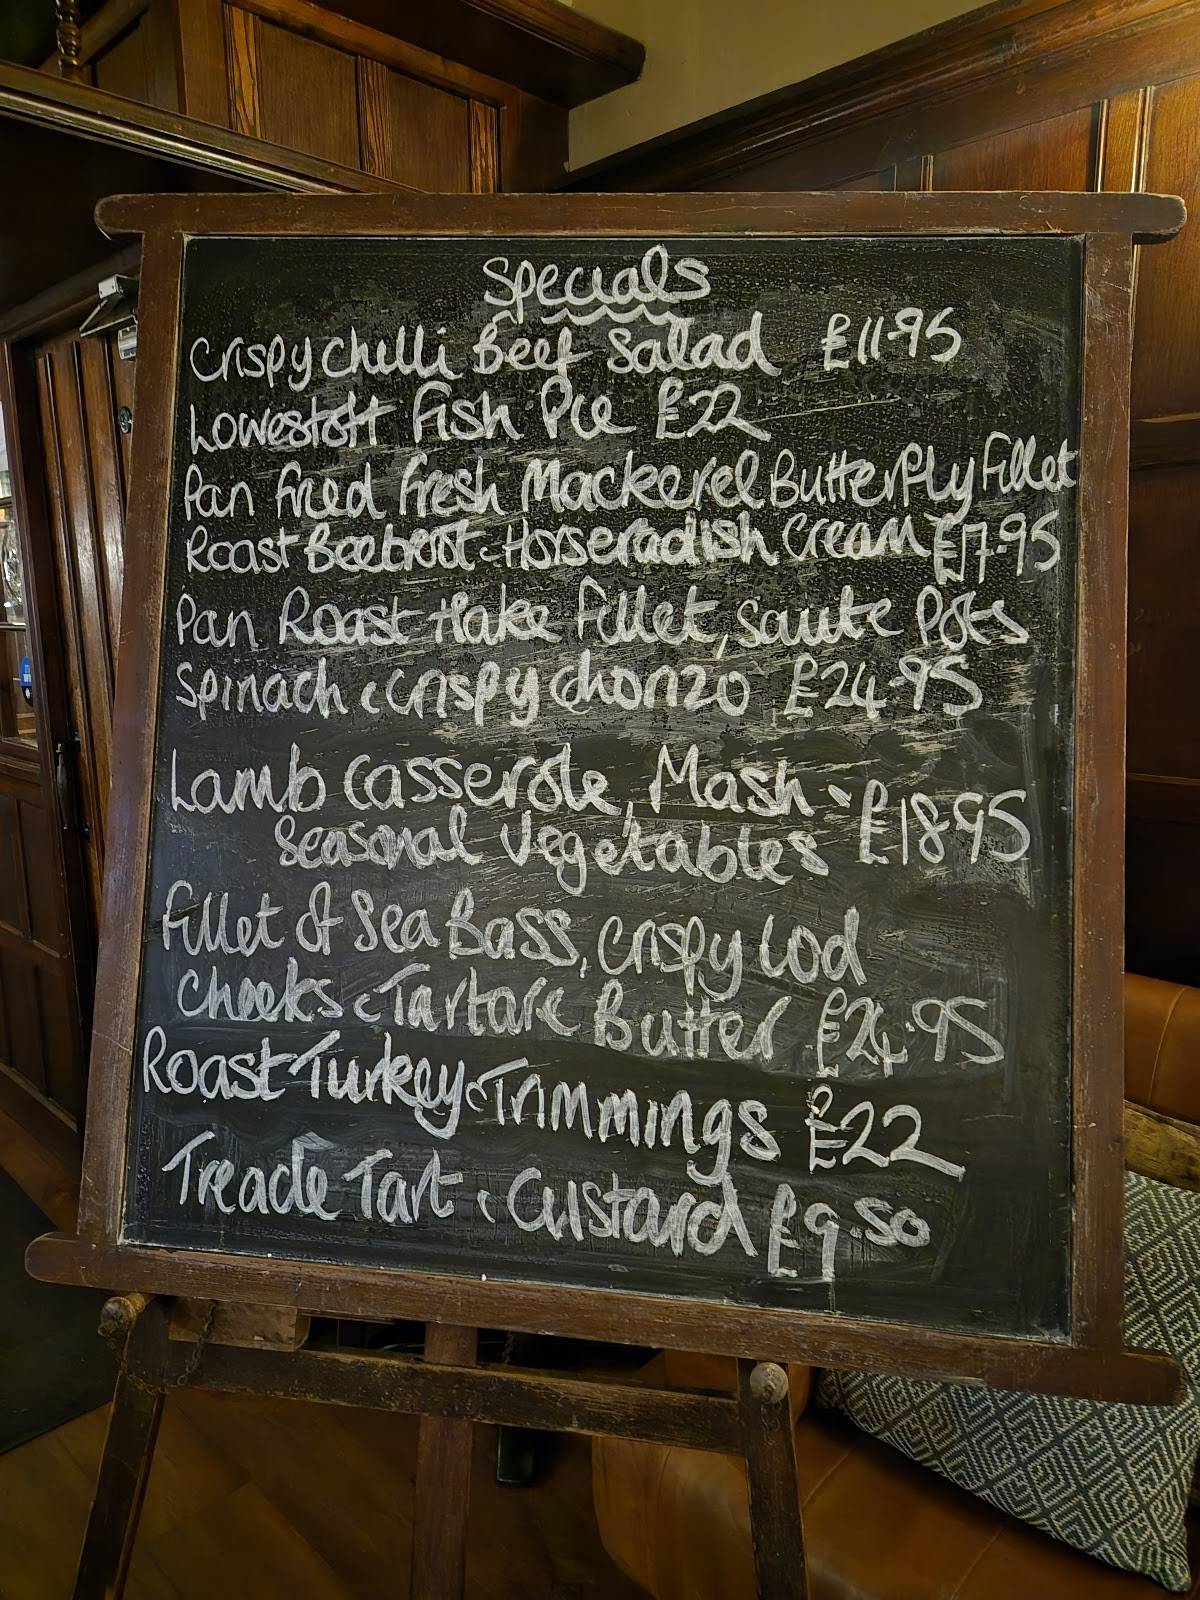 Specials
Crispy Chilli Beef Salad £11.95
Lowestoft Fish Pie £22
Pan Fried Fresh Mackerel Butterfly Fillet
Roast Beetroot & Horseradish Cream £17.95
Pan Roast Hake Fillet, Saute Pots
Spinach & Crispy Chorizo £24.95
Lamb Casserole, Mash &
Seasonal Vegetables £18.95
Fillet of Sea Bass, Crispy Cod
Cheeks & Tartare Butter £24.95
Roast Turkey & Trimmings £22
Treacle Tart & Custard £9.50